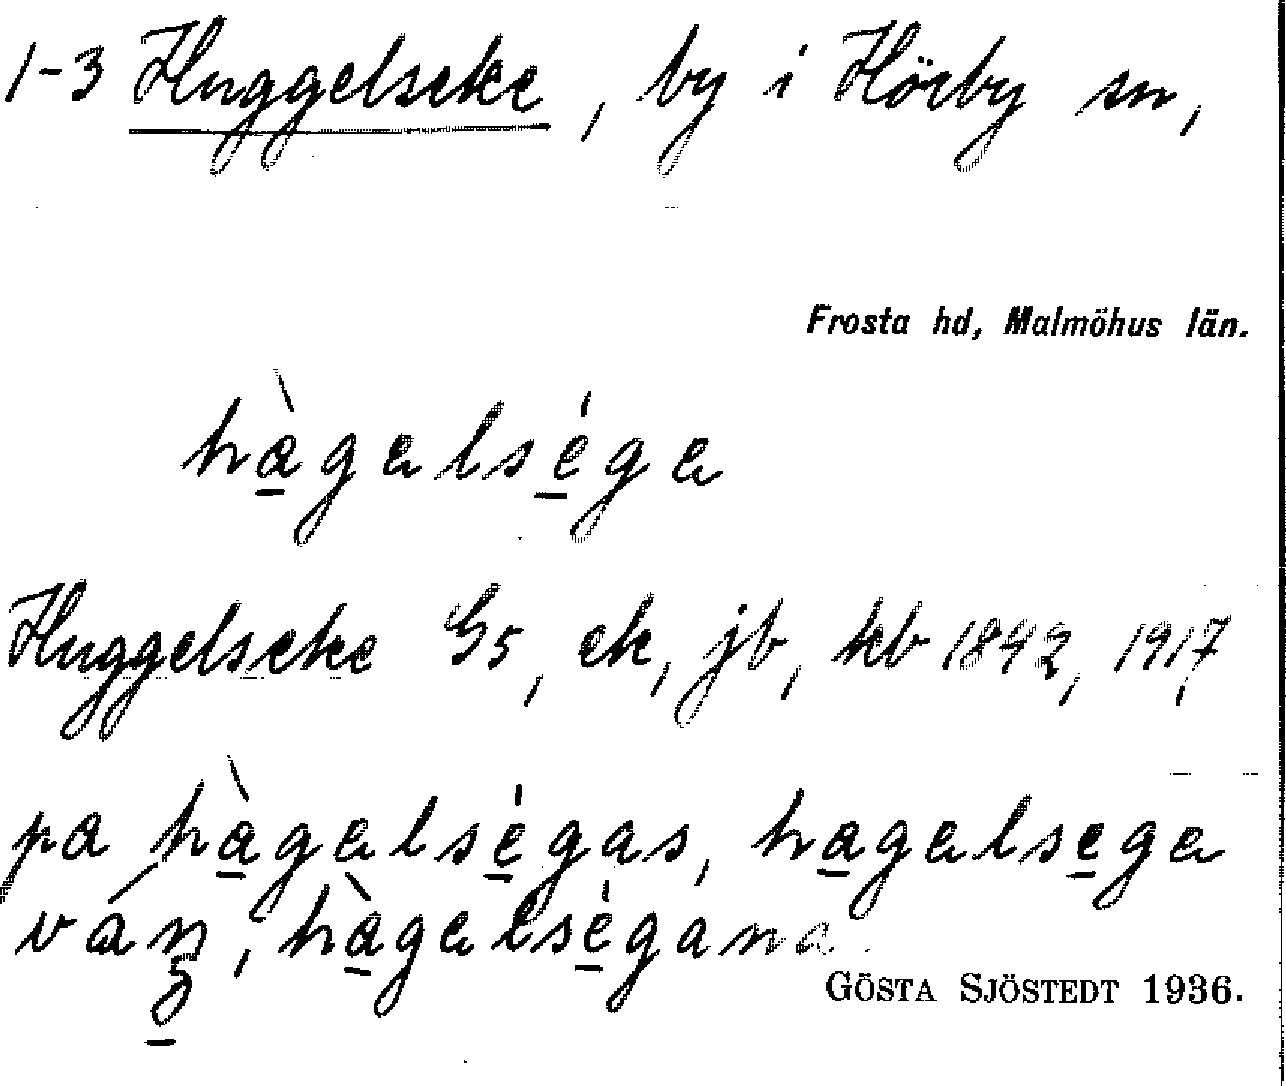 1-3 Huggelseke, by i Hörby sn,
Frosta hd, Malmöhus län.
hàgalsége
Huggelseke G5, ek, jb, kb 1842, 1917,
pa hàgalségas, hagalsega
hàgalségana.
GÖSTA SJÖSTEDT 1936.